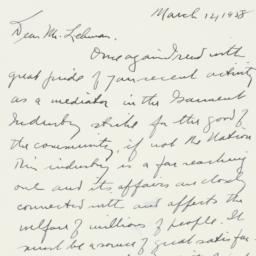 March 12, 1928
Dear Mr. Lehman.
Once again I read with
great pride of your recent activity
as a mediator in the Garment
Industry strike for the good of
the community, if not the Nation
This industry is a far reaching
one and its affairs are closely
connected with and affects the
welfare of millions of people. It
must be a source of great satisfac-